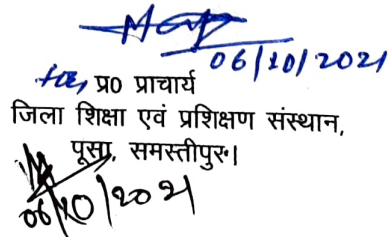 06/10/2021
प्र० प्राचार्य
जिला शिक्षा एवं प्रशिक्षण संस्थान,
पूसा, समस्तीपुर।
06/10/2021